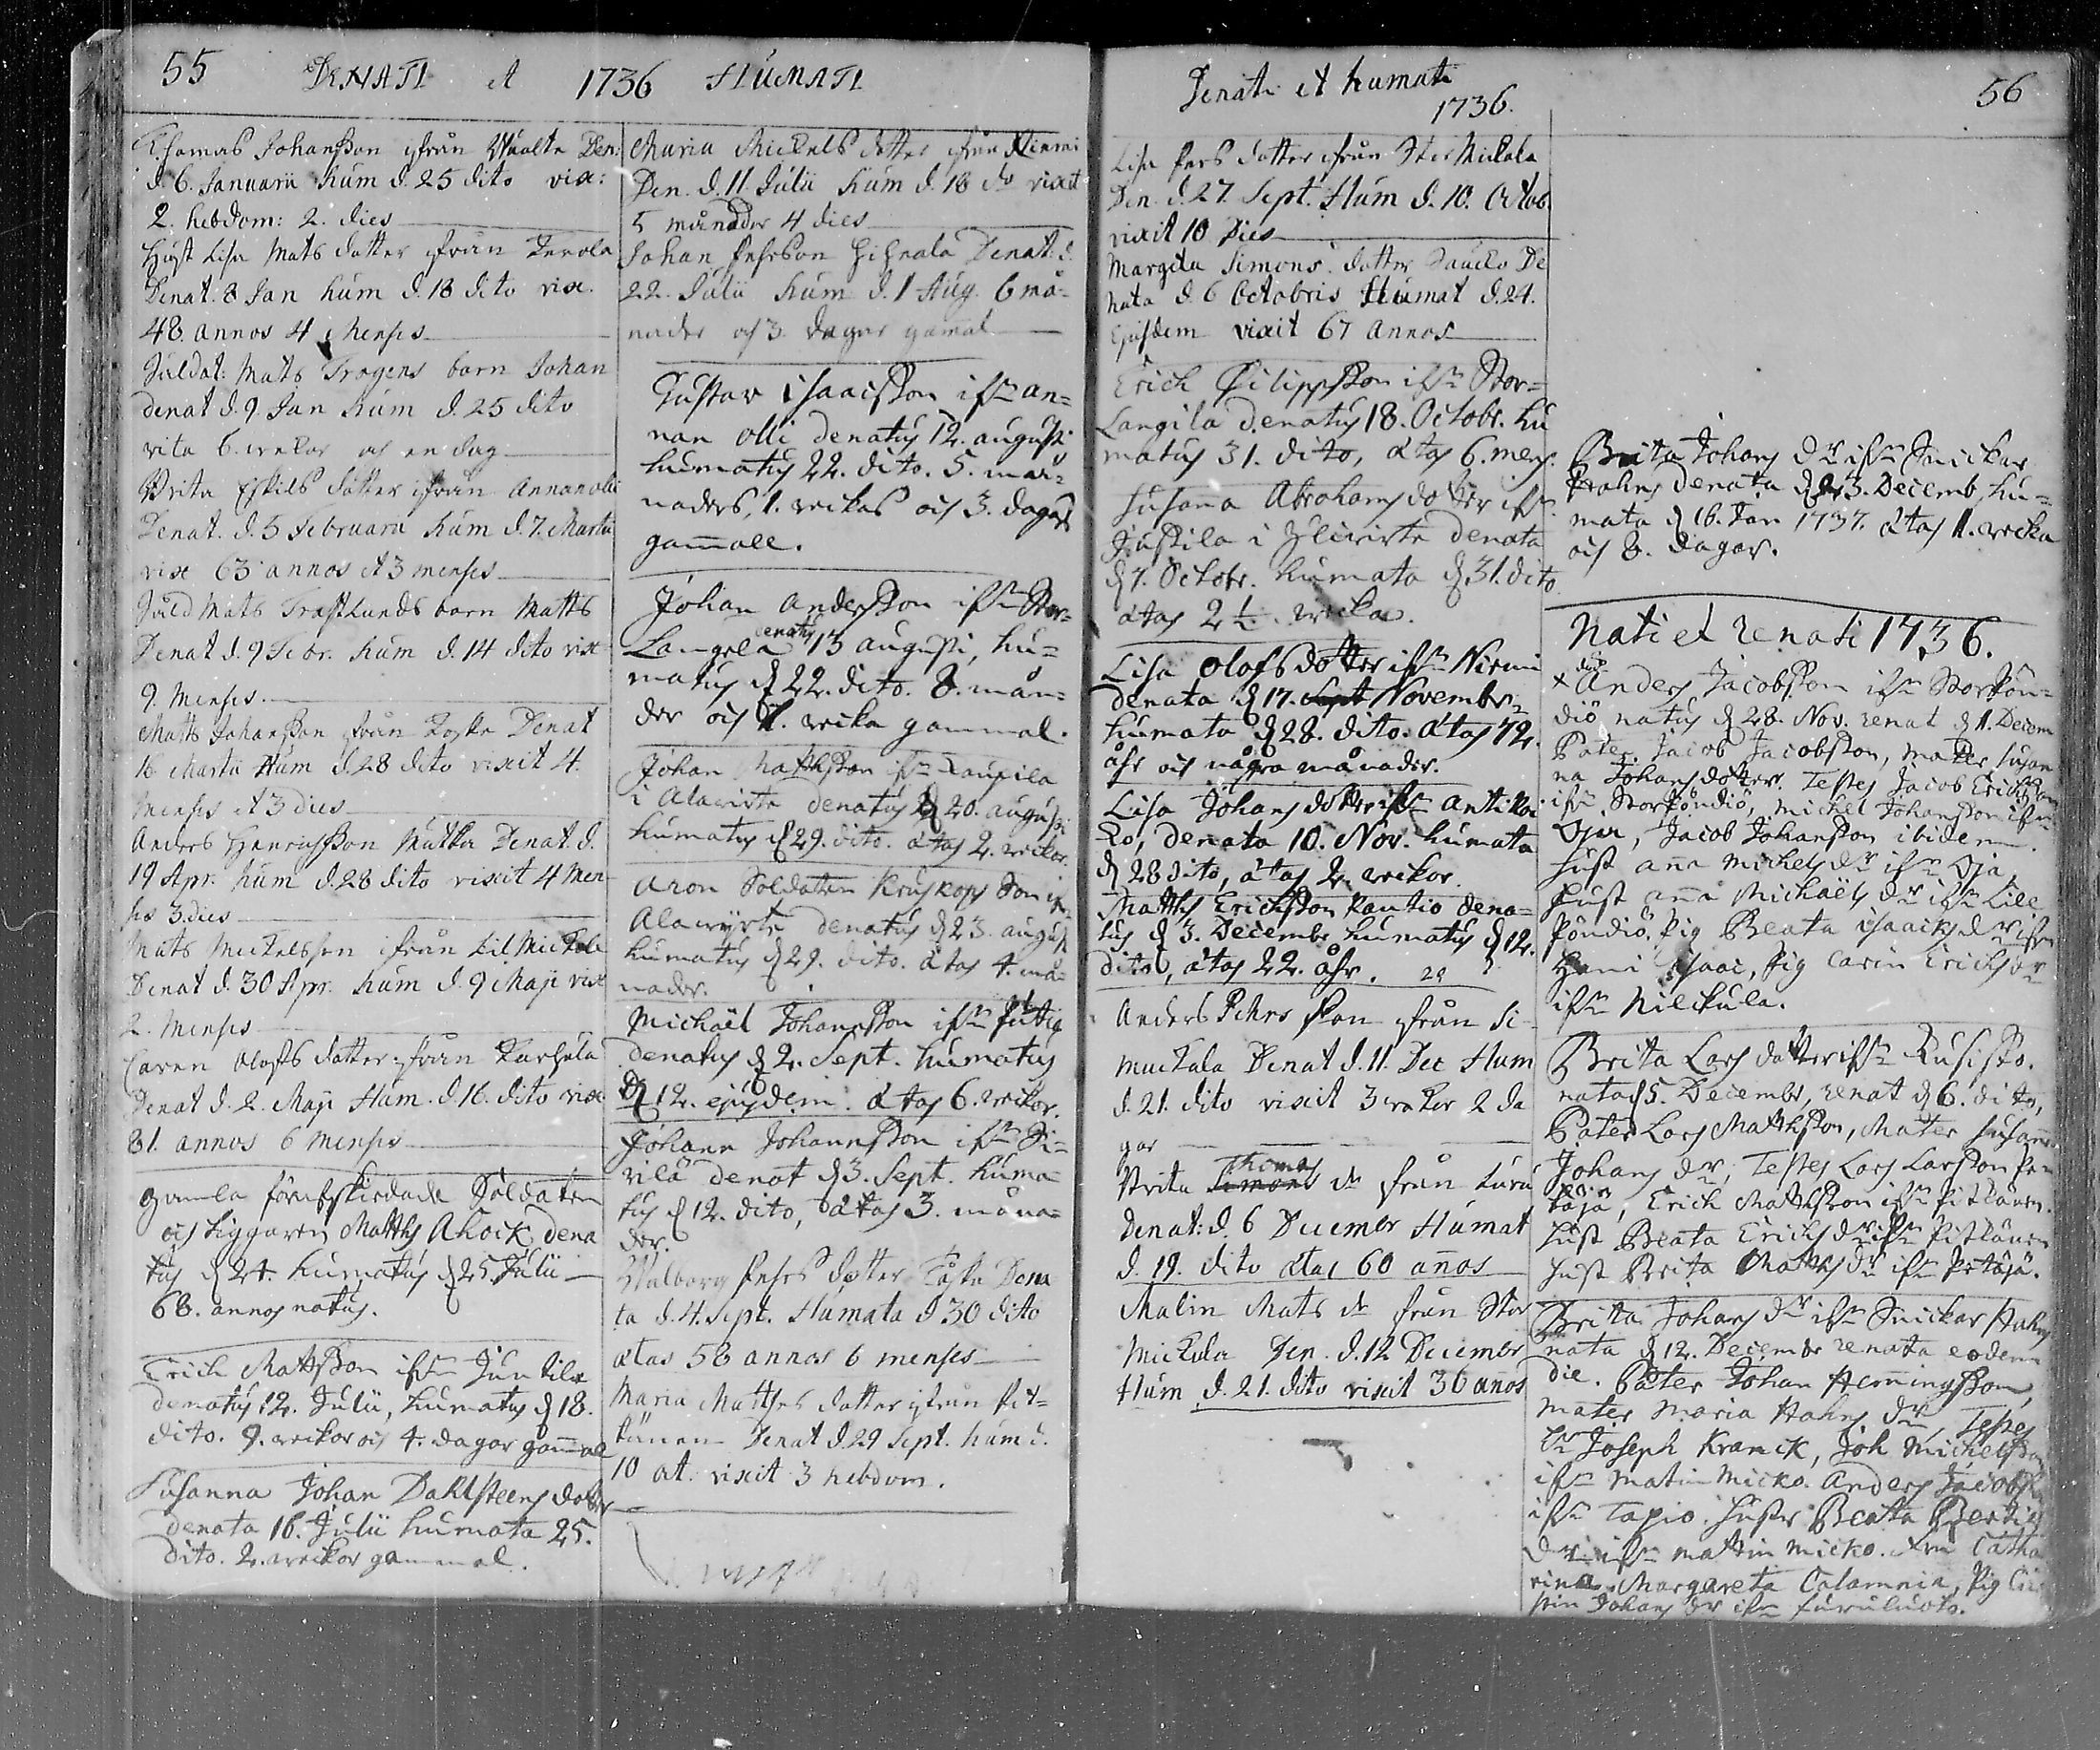 55 DENATI et 1736 HUMATI
Thomas Johansson ifrån Den:
d. 6. Januarii hum d. 25 dito vix:
2. hebdom: 2. dies
Hust Lisa Mats dotter ifrån Terola
Denat. 8 Jan hum d. 18 dito vix.
48. annos 4 menses
Suldat: Mats Trogens barn Johan
denat d. 9. Jan hum d. 25 dito
vita 6. wekor och en dag
Brita Eskils dotter ifrån Annanolli
Denat. d. 5 Februarii hum d. 7. Martii
vix 63 annos et 3 menses
Suld Mats Trastlunds barn Matts
Denat d. 9 Febr. hum d. 14 dito vix
9. menses
Matts Johansson från Denat
16 Martii Hum d. 28 dito vixit 4.
menses et 3 dies
Anders Henrichsson Mutka Denat. d.
19 Apr. hum d. 28 dito vixit 4 Men-
ses 3. dies
Mats Mickelsson ifrån Lil Mickola
Denat d. 30 Apr. hum d. 9 Maji vix
2. Menses
Caren Olofs dotter ifrån Karhula
Denat d. 2. Maji Hum. d. 16. dito vix
81. annos 6 menses
gamla förafskiedade Soldaten
och tiggaren Matths Ahock, dena
tus d 24. humatus d 25 Julii
68. annos natus.
Erich Mattsson ifrn Juntila
denatus 12. Julii, humatus d 18.
dito. 9. weckor och 4. dagar gammal
Susanna Johan Dahlsteens dotter
denata 16. Julii humata 25.
dito. 2. weckor gammal.
Maria Mickels dotter ifrån Niemi
Den. d. 11. Julii hum d. 18 do vixit
5 månader 4 dies
Johan Pehrson Denat: d.
22. Julii hum d. 1 Aug. 6 må-
nader och 3. dagar gamal
Gustav Isaacsson ifrn an=
nan olli denatus 12. augusti
humatus 22. dito. 5. må=
naders, 1. weckas och 3. dagars
gamall.
Johan andersson ifrn Stor=
Langila denatus 13 augusti, hu=
matus d 22. dito. 8. mån=
der och 1. wecka gammal.
Johan Matthsson ifrn Laurila
i Alawirta denatus d 20. augusti
humatus d 29. dito. ætas 2. weckor.
Aron Soldaten Kruskops Son ifrn
Alawyrta denatus d 23. august
humatus d 29. dito. ætas 4. må=
nader.
Michaël Johansson ifrn
denatus d 2. Sept. humatus
d 12. ejusdem. ætas 6. weckor.
Johann Johannsson ifrn Si=
rilä denat d 3. Sept. huma=
tus d 12. dito, ætas 3. måna=
der.
Walborg Pehrs dotter Dena
ta d. 4. Sept. Humata d 30 dito
ætas 58 annos 6 menses
Maria Matthes dotter ifrån Pit=
känen Denat d. 29 Sept. hum d.
10 vixit 3 hebdom.
Denati et humati
1736.
56
Lisa Pers dotter ifrån Stor Mickala
Den. d. 27. Sept. Hum d. 10. Octob.
vixit 10 Dies
Margeta Simons dotter De
nata d. 6 Octobris Humat d. 24.
Ejusdem vixit 67 annos
Erich Philippsson ifrn Stor=
Langila denatus 18. Octobr. hu
matus 31. dito, ætas 6. mens.
Susanna Abrahams dotter ifrn
Juskila i Yliwirta denata
d 7. Octobr. humata d 31. dito
ætas 2 1/2. wecka.
Lisa olofsdotter ifrn Niemi
denata d 17. Sept Novembr.
humata d 28. dito. ætas 72.
åhr och några månader.
Lisa Johans dotter ifrn Antikai
ko, denata 10. Nov. humata
d 28 dito, ætas 2. weckor.
Matths Erichsson Kautio dena=
tus d 3. Decembr humatus d 12.
dito, ætas 22. åhr.
Anders Pehrs Son ifrån Li
Muckala Denat d. 11. Dec Hum
d. 21. dito vixit 3 wekor 2 da
gar
Brita Simons Thomas dr ifrån
Denat: d. 6 Decemer Humat
d. 19. dito ætas 60 años
Malin Mats dr från Stor
Mickola Den. d. 12 Decemer
Hum d. 21. dito vixit 36 años
Brita Johans dr ifrn Snickar
Hahns denata d 23. Decemb, hu=
mata d 16. Jan 1737. ætas 1. wecka
och 8. dagar.
Nati et renati 1736.
x Anders Jacobsson ifrn Storpön=
diö natus d 28. Nov. renat d 1. Decem
Pater Jacob Jacobsson, mater Susan
na Johansdotter. Testes Jacob Ericksson
ifrn Storpöndiö, Michel Johansson ifrn
Oja, Jacob Johansson ibidem.
Hust ana Michels dr ifrn Oja,
Hust aña Michaëls dr ifrn Lill
Pöndiö. Pig Beata Isaacks dr ifrn
Heni Isaac, Pig Carin Erichs dr
ifrn Nilckula.
Brita Lars dotter ifrn Kusisto.
nata d 5. Decembr, renat d 6. dito,
Pater Lars Matthsson, Mater Susanna
Johans dr, Testes Lars Larsson Pe
täjä, Erich Matthsson ifrn Pitkänen.
Hust Beata Erichs dr ifrn Pitkänen
Hust Brita Matths dr ifrn Petäjä.
Brita Johans dr ifrn Snickar Hahns
nata d 12. Decembr renata eodem
die. Pater Johan Hemingsson,
Mater Maria Hahns dr, Testes
Joseph Kranck, Joh Michelsson
ifrn Matin Micko. Anders Jacobsson
ifrn Tapio. hustr Beata Bertils
dr ifrn mattin micko. Catha
rina Margareta Calamnia, Pig
Johans dr ifrn